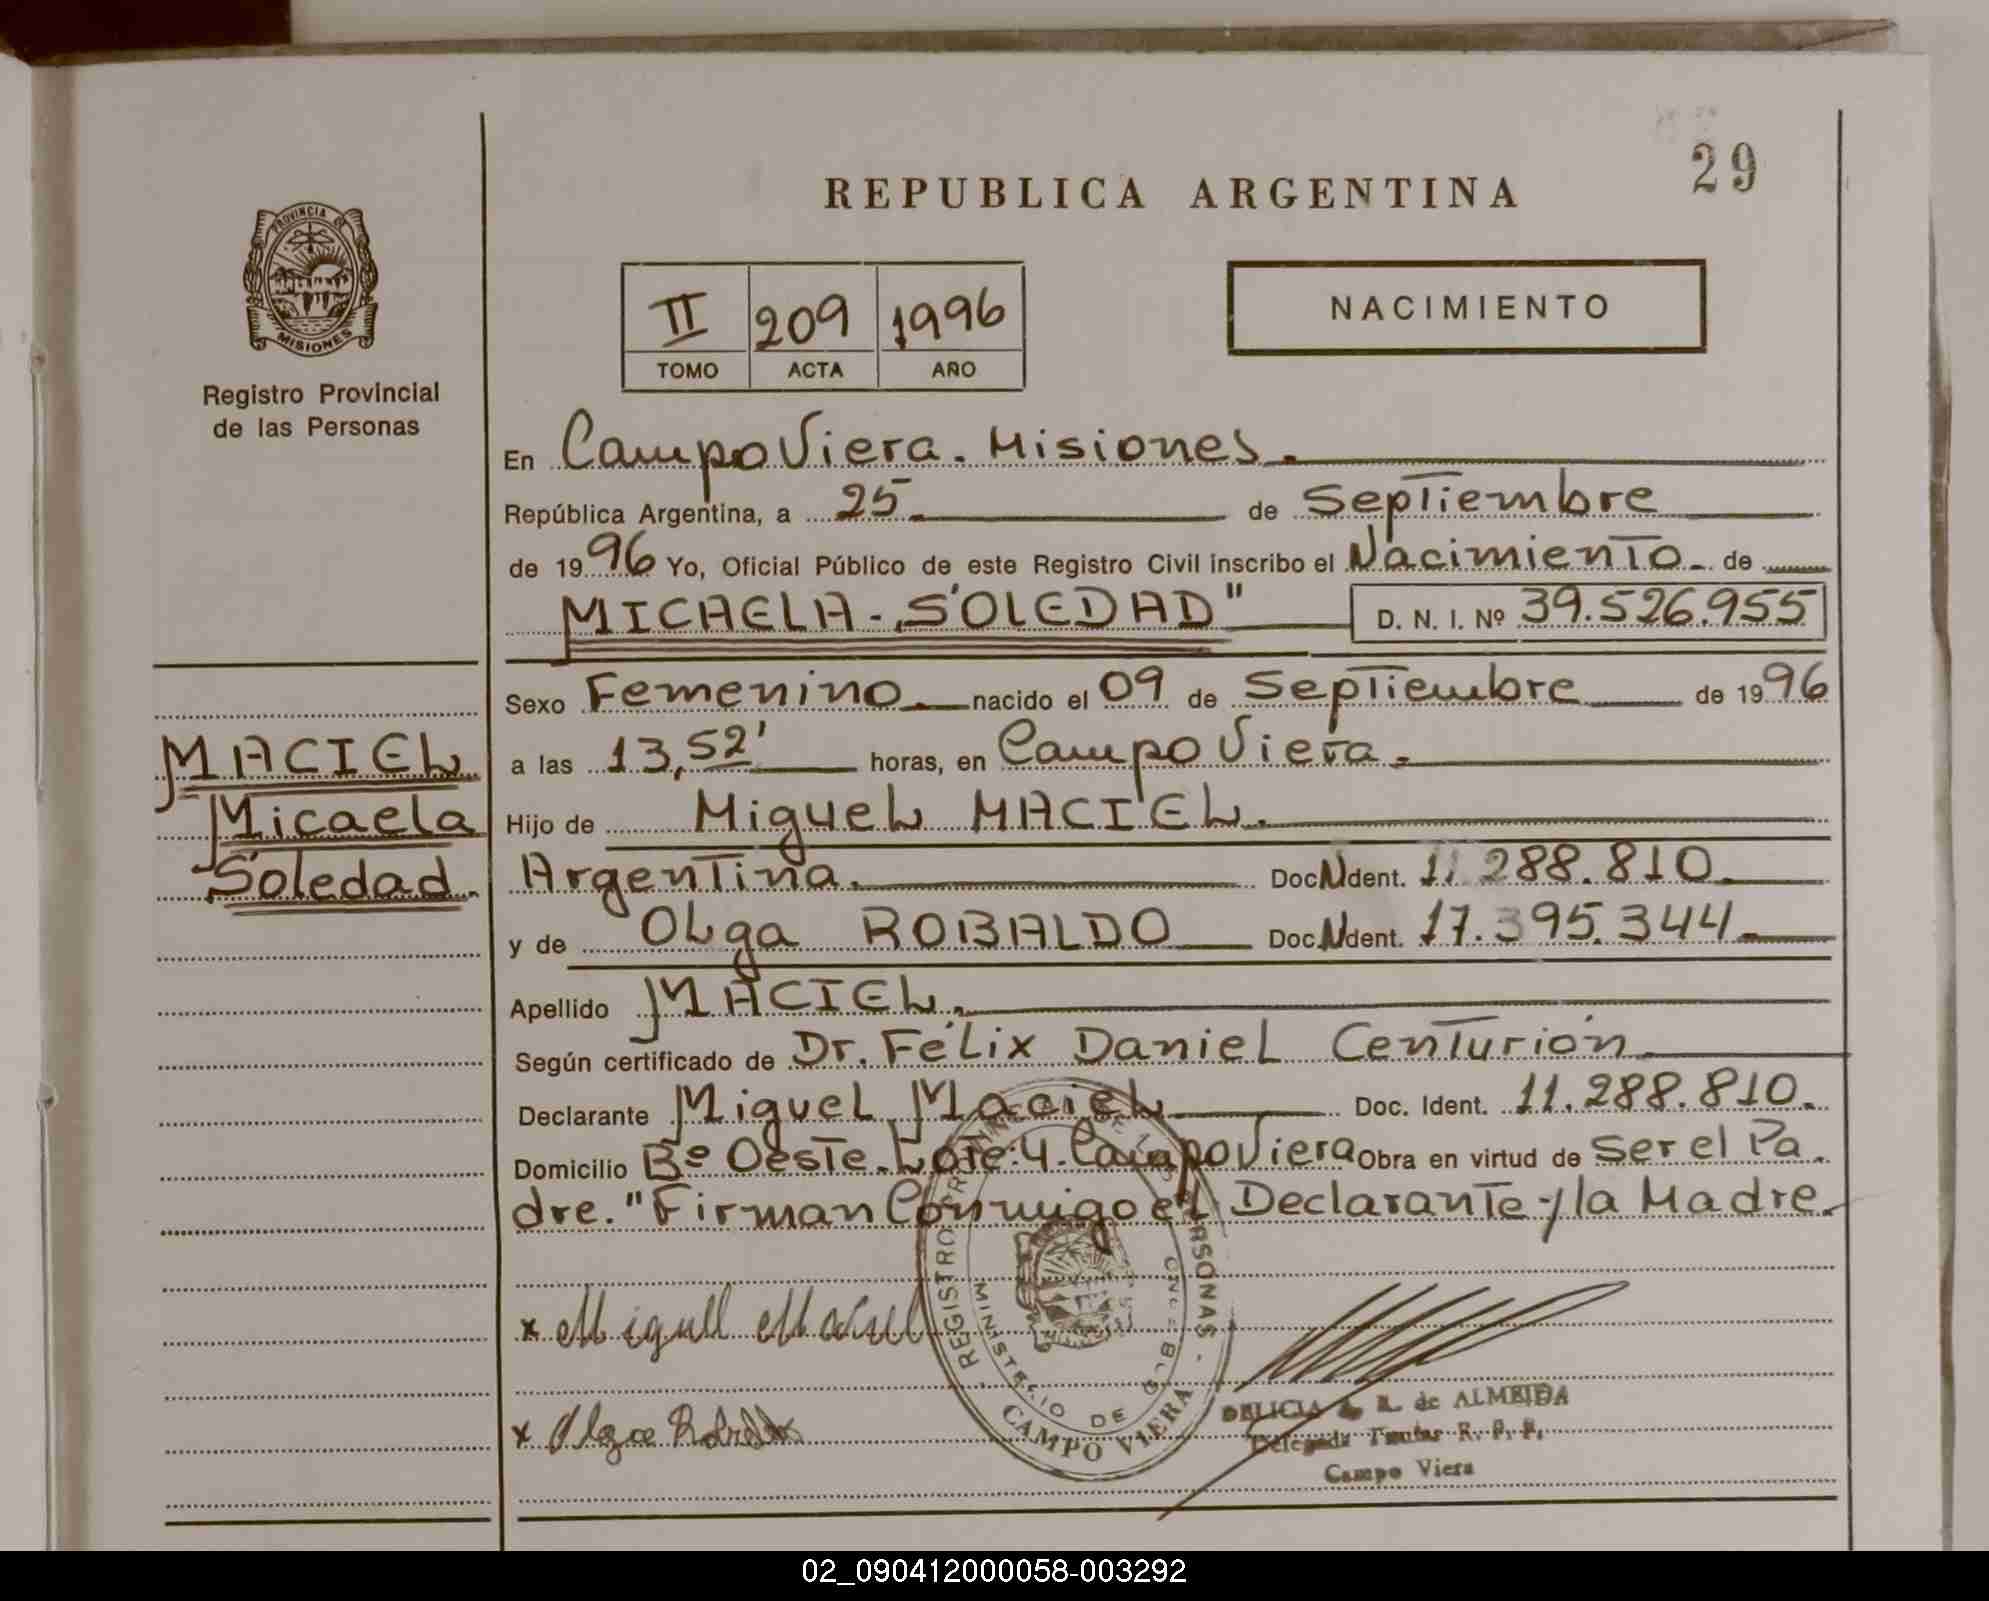 29
REPUBLICA ARGENTINA
PROVINCIA DE
MISIONES
Registro Provincial
de las Personas
II 209 1996
TOMO ACTA AÑO
NACIMIENTO
En Campo Viera. Misiones.
República Argentina, a 25 de Septiembre
de 1996 Yo, Oficial Público de este Registro Civil inscribo el Nacimiento de
MICAELA-SOLEDAD" D. N. I. Nº 39.526.955
Sexo Femenino nacido el 09 de Septiembre de 1996
MACIEL
Micaela
Soledad.
a las 13,52' horas, en Campo Viera.
Hijo de Miguel MACIEL.
Argentina. Doc. Ident. 11.288.810.
y de Olga ROBALDO Doc. Ident. 17.395.344
Apellido MACIEL.
Según certificado de Dr. Félix Daniel Centurión
Declarante Miguel Maciel Doc. Ident. 11.288.810.
Domicilio Bº Oeste. Lote: 4. Campo Viera Obra en virtud de Ser el Pa
dre. "Firman Conmigo el Declarante y la Madre.
x Miguel Maciel
x Olga
REGISTRO PROVINCIAL DE LAS PERSONAS
MINISTERIO DE
CAMPO VIERA
DELICIA R. de ALMEIDA
Delegada Titular R. P. P.
Campo Viera
02_090412000058-003292